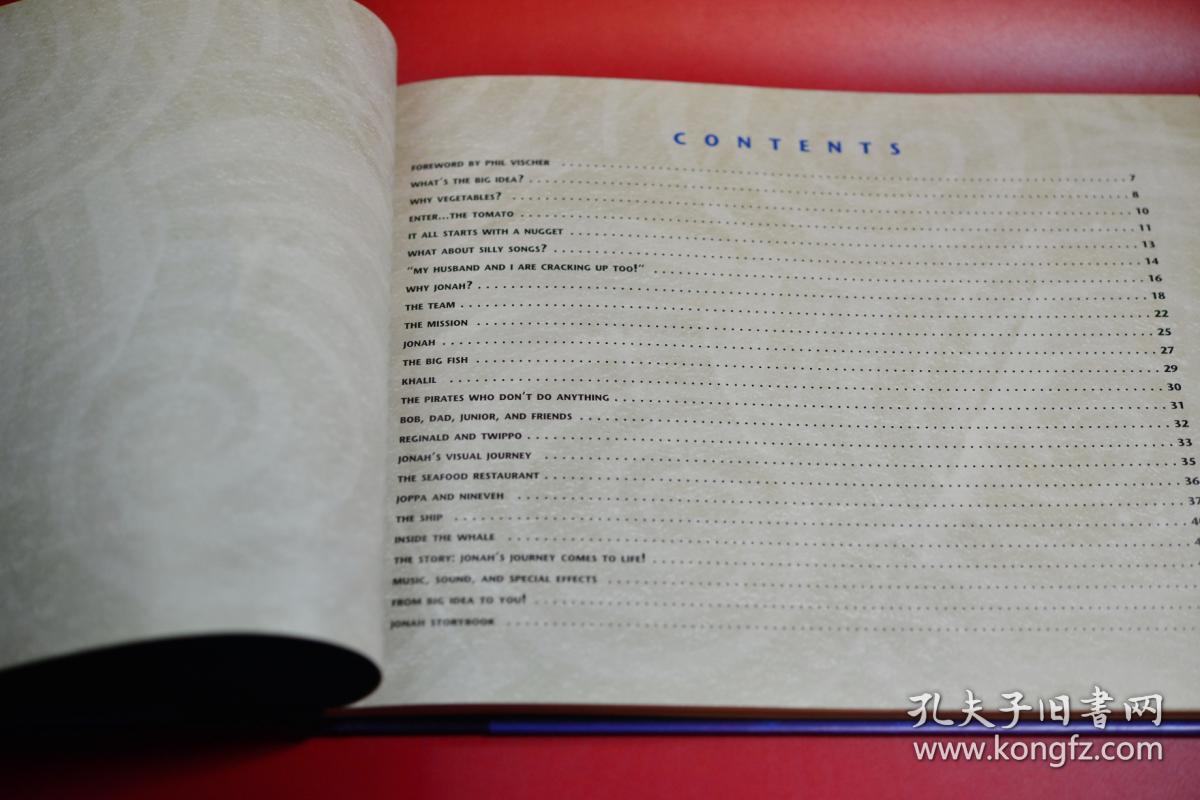 CONTENTS
FOREWORD BY PHIL VISCHER 7
WHAT'S THE BIG IDEA? 8
WHY VEGETABLES? 10
ENTER...THE TOMATO 11
IT ALL STARTS WITH A NUGGET 13
WHAT ABOUT SILLY SONGS? 14
"MY HUSBAND AND I ARE CRACKING UP TOO!" 16
WHY JONAH? 18
THE TEAM 22
THE MISSION 25
JONAH 27
THE BIG FISH 29
KHALIL 30
THE PIRATES WHO DON'T DO ANYTHING 31
BOB, DAD, JUNIOR, AND FRIENDS 32
REGINALD AND TWIPPO 33
JONAH'S VISUAL JOURNEY 35
THE SEAFOOD RESTAURANT 36
JOPPA AND NINEVEH 37
THE SHIP
INSIDE THE WHALE
THE STORY: JONAH'S JOURNEY COMES TO LIFE!
MUSIC, SOUND, AND SPECIAL EFFECTS
FROM BIG IDEA TO YOU!
JONAH STORYBOOK
孔夫子旧书网
www.kongfz.com